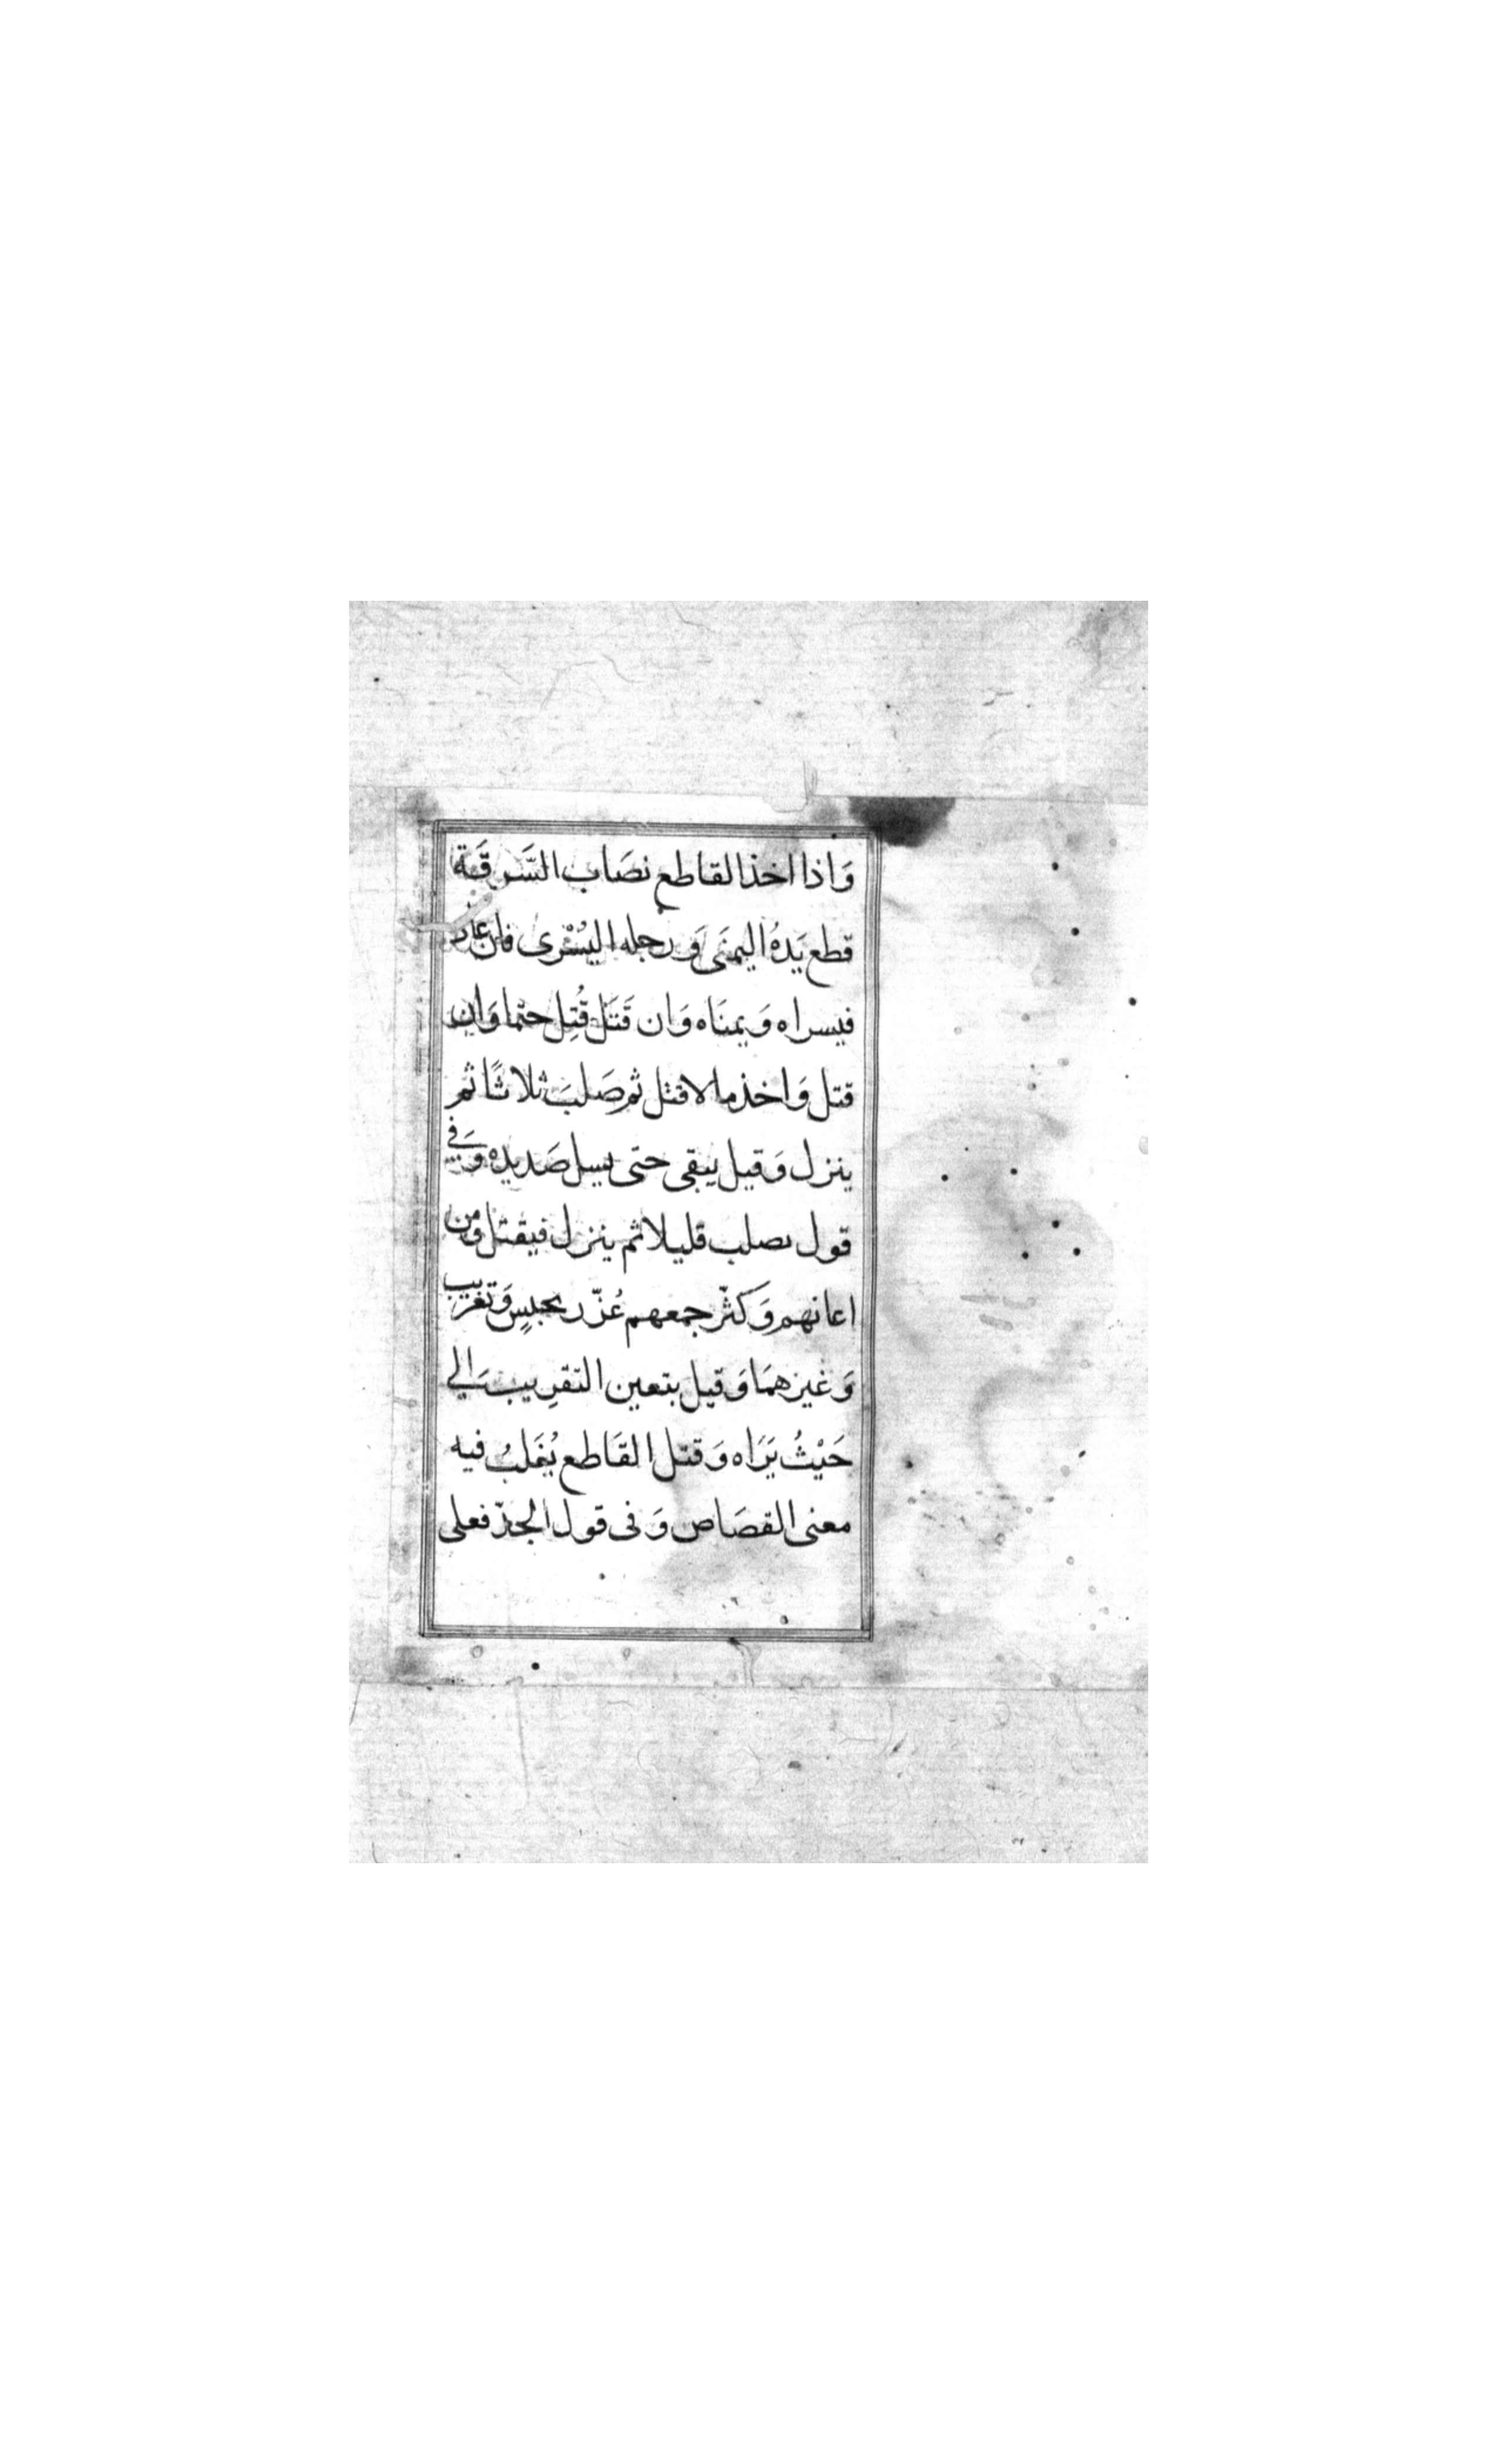 وَاذا اخذ القاطع نصَاب السَّرقَة
قطع يَدهُ اليمنَى وَرجله اليُسْرى فان عَاد
فيسراه وَيمنَاه وَان قَتَل قُتِل حتما وَان
قتل وَاخذ مالا قتل ثم صَلبَ ثلاثًا ثم
ينزل وَقيل يبقى حتى يسيل صَديده وَفي
قول يصلب قليلا ثم ينزل فيقتل وَمن
اعانهم وَكثّر جمعهم عُزّر بحبسٍ وَتغريب
وَغيرهمَا وَقيل يتعين التغرِيب الي
حَيْثُ يَرَاه وَقتل القَاطع يُغَلبُ فيه
معنى القصَاص وَفى قول الحدّ فعلى